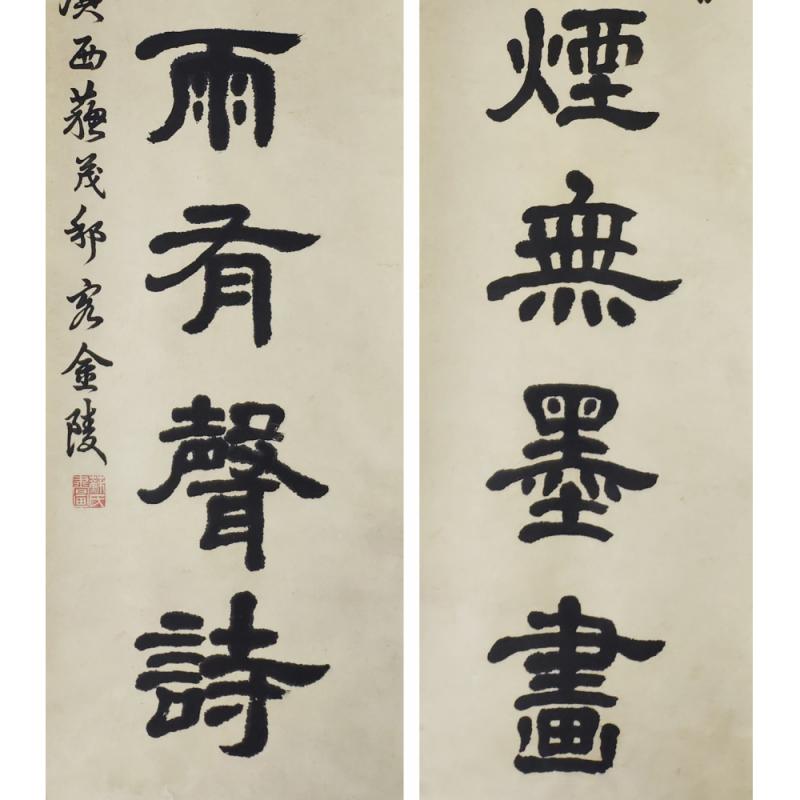 煙無墨畫
雨有聲詩
西蘇茂邨客金陵